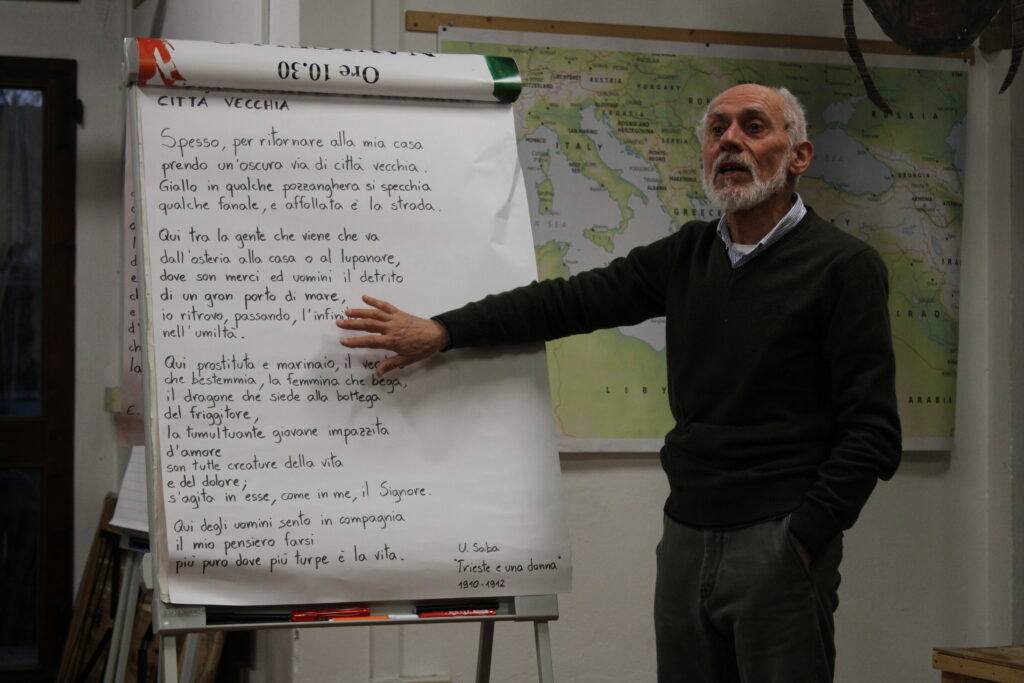 Ore 10.30
CITTÀ VECCHIA
Spesso, per ritornare alla mia casa
prendo un'oscura via di città vecchia.
Giallo in qualche pozzanghera si specchia
qualche fanale, e affollata è la strada.
Qui tra la gente che viene che va
dall'osteria alla casa o al lupanare,
dove son merci ed uomini il detrito
di un gran porto di mare,
io ritrovo, passando,
nell'umiltà.
Qui prostituta e marinaio, il
che bestemmia, la femmina che bega,
il dragone che siede alla bottega
del friggitore,
la tumultuante giovane impazzita
d'amore
son tutte creature della vita
e del dolore;
s'agita in esse, come in me, il Signore.
Qui degli uomini sento in compagnia
il mio pensiero farsi
più puro dove più turpe è la vita.
U. Saba
"Trieste e una donna"
1910-1912
AUSTRIA
HUNGARY
CROATIA
BOSNIA AND
HERZEGOVINA
SERBIA
SAN MARINO
MONACO
ITALY
ALBANIA
GREECE
RUSSIA
GEORGIA
IRAQ
LIBY
ARABIA